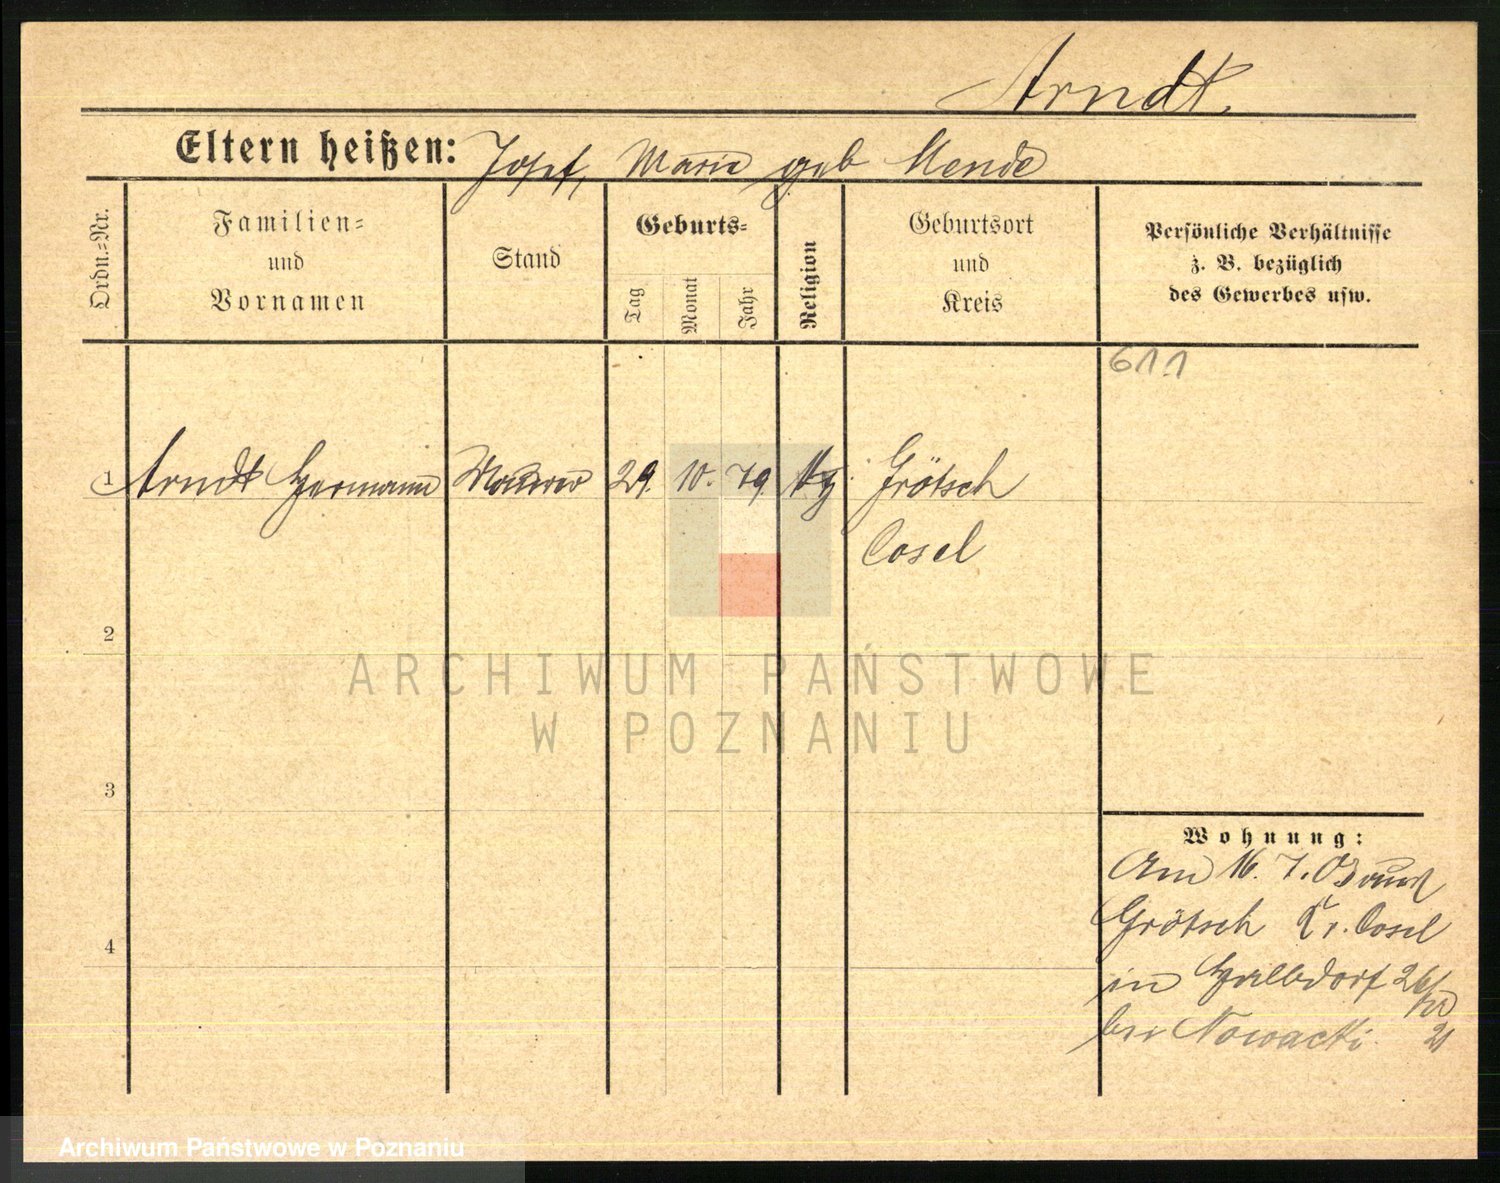 Arndt.
Eltern heißen: Josef, Marie geb Mende
Ordn.=Nr.
Familien= und Vornamen
Stand
Geburts=
Tag
Monat
Jahr
Religion
Geburtsort und Kreis
Persönliche Verhältnisse
z. B. bezüglich
des Gewerbes usw.
611
1 Arndt Hermann Maurer 29. 10. 79. Grötsch
Cosel
2
ARCHIWUM PAŃSTWOWE
W POZNANIU
3
4
Wohnung:
Am 16. 7. 03 nach
Grötsch Kr. Cosel
in Halbdorf 26
bei Nowacki. 21
Archiwum Państwowe w Poznaniu